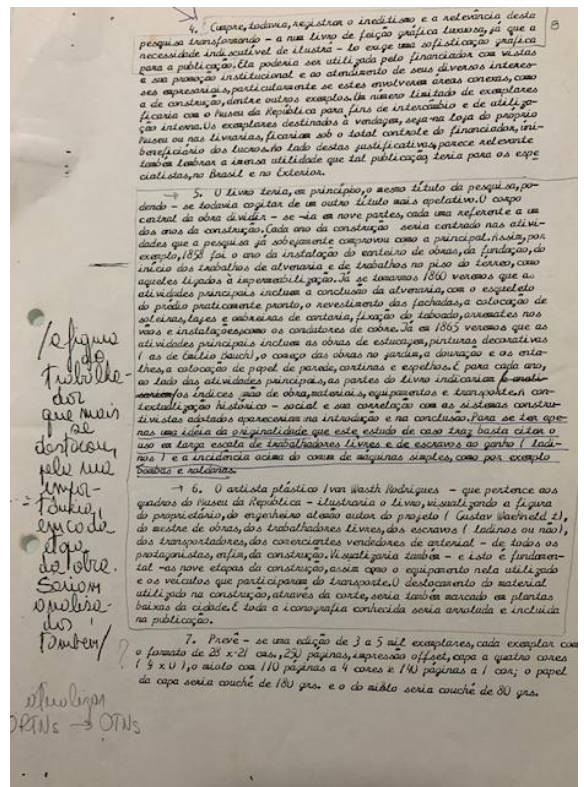 8
4. Cumpre, todavia, registrar o ineditismo e a relevância desta
pesquisa transformando - a num livro de feição gráfica luxuosa, já que a
necessidade indiscutível de ilustrá - lo exige uma sofisticação gráfica
para a publicação. Ela poderia ser utilizada pelo financiador com vistas
à sua promoção institucional e ao atendimento de seus diversos interes-
ses empresariais, particularmente se estes envolverem áreas conexas, como
a de construção, dentre outros exemplos. Um número limitado de exemplares
ficaria com o Museu da República para fins de intercâmbio e de utiliza-
ção interna. Os exemplares destinados à vendagem, seja na loja do próprio
Museu ou nas livrarias, ficariam sob o total controle do financiador, uni-
beneficiário dos lucros. Ao lado destas justificativas, parece relevante
também lembrar a imensa utilidade que tal publicação teria para os espe
cialistas, no Brasil e no Exterior.
→ 5. O livro teria, em princípio, o mesmo título da pesquisa, po-
dendo - se todavia cogitar de um outro título mais apelativo. O corpo
central da obra dividir - se -ia em nove partes, cada uma referente a um
dos anos da construção. Cada ano da construção seria centrado nas ativi-
dades que a pesquisa já sobejamente comprovou como a principal. Assim, por
exemplo, 1858 foi o ano da instalação do canteiro de obras, da fundação, do
início dos trabalhos de alvenaria e de trabalhos no piso do térreo, como
aqueles ligados à impermeabilização. Já se tomarmos 1860 veremos que as
atividades principais incluem a conclusão da alvenaria, com o esqueleto
do prédio praticamente pronto, o revestimento das fachadas, a colocação de
soleiras, lajes e ombreiras de cantaria, fixação do taboado, arremates nos
vãos e instalações, como os condutores de cobre. Já em 1865 veremos que as
atividades principais incluem as obras de estucagem, pinturas decorativas
( as de Emílio Bauch), o começo das obras no jardim, a douração e os enta-
lhes, a colocação de papel de parede, cortinas e espelhos. E para cada ano,
ao lado das atividades principais, as partes do livro indicariam
os índices mão de obra, materiais, equipamentos e transporte. A con-
textualização histórico - social e sua correlação com os sistemas constru-
tivistas adotados apareceriam na introdução e na conclusão. Para se ter ape-
nas uma idéia da originalidade que este estudo de caso traz basta citar o
uso em larga escala de trabalhadores livres e de escravos ao ganho ( ladi-
nos ) e a incidência acima do comum de máquinas simples, como por exemplo
bombas e roldanas.
→ 6. O artista plástico Ivan Wasth Rodrigues - que pertence aos
quadros do Museu da República - ilustraria o livro, visualizando a figura
do proprietário, do engenheiro alemão autor do projeto ( Gustav Waehneldt),
do mestre de obras, dos trabalhadores livres, dos escravos ( ladinos ou não),
dos transportadores, dos comerciantes vendedores de material - de todos os
protagonistas, enfim, da construção. Visualizaria também - e isto é fundamen-
tal -as nove etapas da construção, assim como o equipamento nela utilizado
e os veículos que participaram do transporte. O deslocamento do material
utilizado na construção, através da corte, seria também marcado em plantas
baixas da cidade. E toda a iconografia conhecida seria arrolada e incluída
na publicação.
7. Prevê - se uma edição de 3 a 5 mil exemplares, cada exemplar com
o formato de 28 x 21 cms., 250 páginas, impressão offset, capa a quatro cores
( 4 x 0 ), o miolo com 110 páginas a 4 cores e 140 páginas a 1 cor; o papel
da capa seria couché de 180 grs. e o do miolo seria couché de 80 grs.
/a figura
do
trabalha-
dor
que mais
se
destacou,
pela sua
impor-
tância,
em cada
etapa
da obra.
Seriam
analisa-
dos
também/
?
atualizar
ORTNs → OTNs